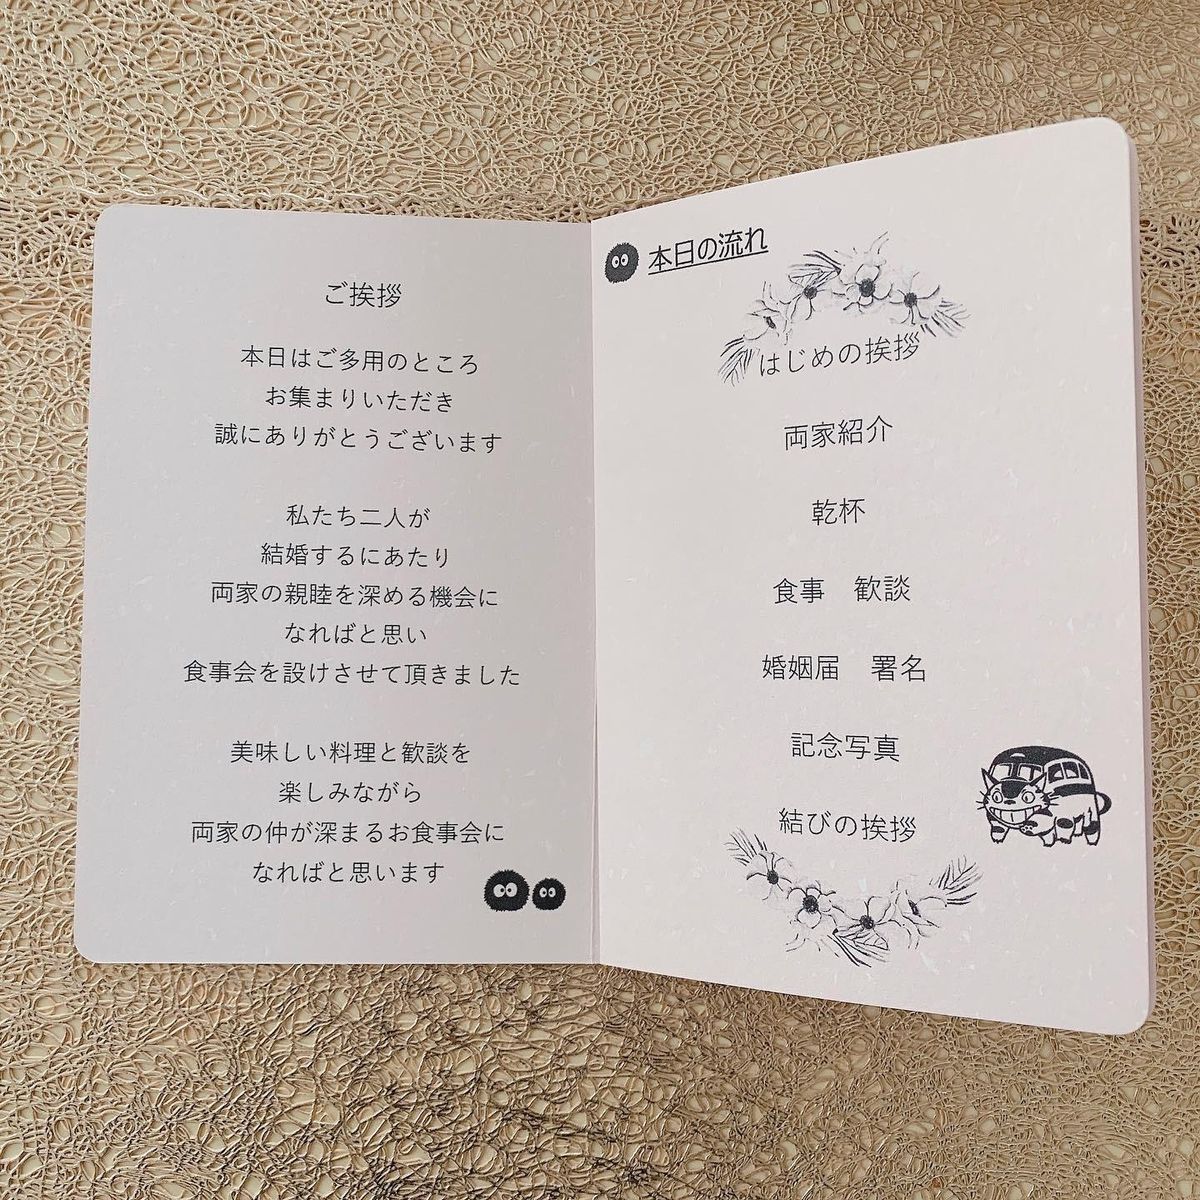 ご挨拶
本日はご多用のところ
お集まりいただき
誠にありがとうございます
私たち二人が
結婚するにあたり
両家の親睦を深める機会に
なればと思い
食事会を設けさせて頂きました
美味しい料理と歓談を
楽しみながら
両家の仲が深まるお食事会に
なればと思います
本日の流れ
はじめの挨拶
両家紹介
乾杯
食事　歓談
婚姻届　署名
記念写真
結びの挨拶